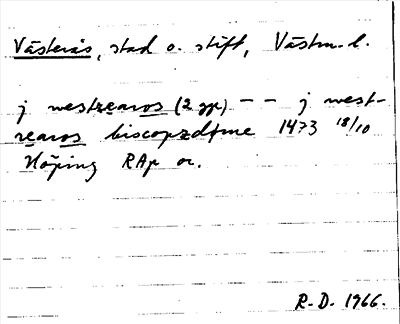 Västerås, stad o. stift, Västm. l.
j westrearos (2 ggr) – – j west-
rearos biscopzdøme 1473 18/10
Köping RAp or.
R.D. 1966.